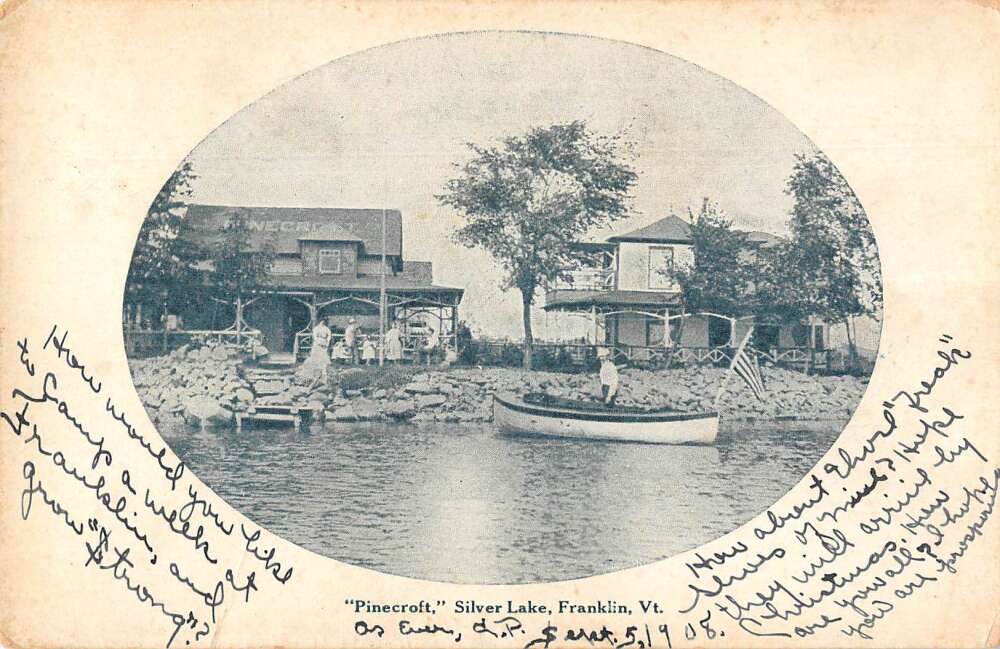 PINECROFT
How would you like
to Camp a week at
Franklin, and
grow "strong"?
"Pinecroft," Silver Lake, Franklin, Vt.
As Ever, L.P. Sept. 5, 1908.
How about those "Freak"
of mine? Hope
they will arrive by
Christmas. How
are you all? I hope
you are prosperous